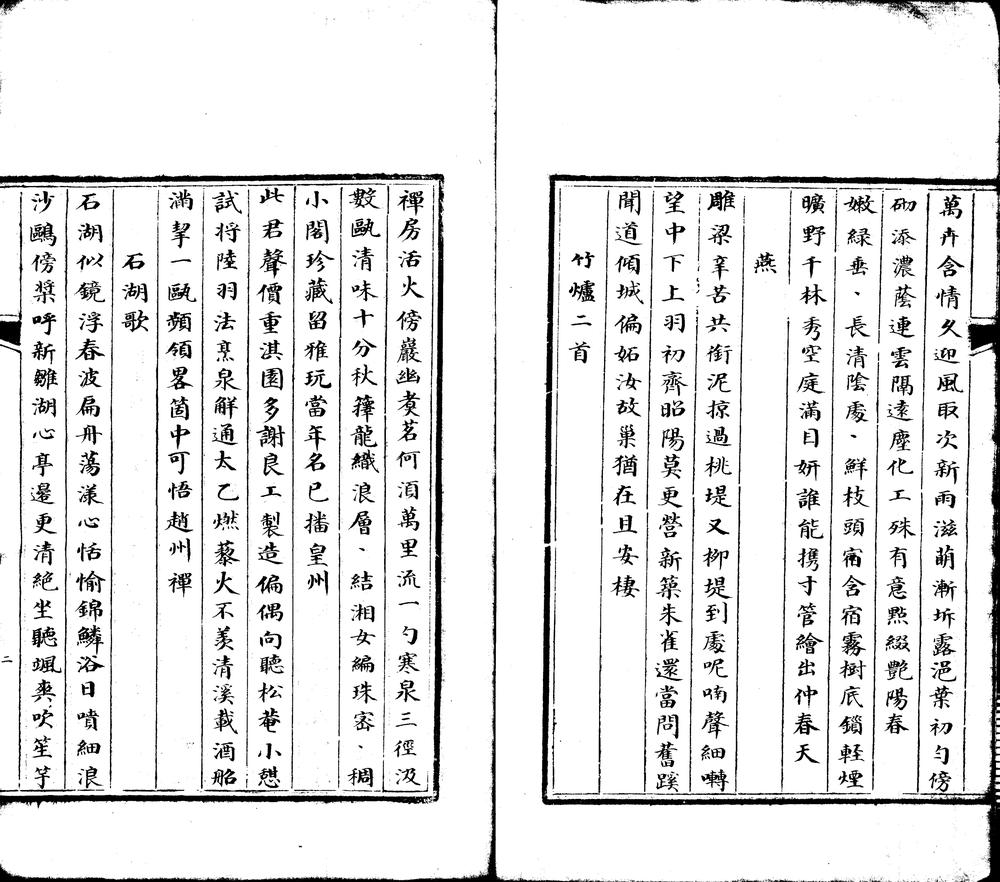 萬卉含情久迎風取次新雨滋萌漸坼露浥葉初勻傍
砌添濃蔭連雲隔遠塵化工殊有意點綴艷陽春
嫩綠垂、長清陰處、鮮枝頭窗含宿霧樹底鎖輕煙
曠野千林秀空庭滿目妍誰能携寸管繪出仲春天
燕
雕梁辛苦共銜泥掠過桃堤又柳堤到處呢喃聲細囀
望中下上羽初齊昭陽莫更營新築朱雀還當問舊蹊
聞道傾城偏妬汝故巢猶在且安棲
竹爐二首
禪房活火傍巖幽煑茗何湏萬里流一勺寒泉三徑汲
數甌清味十分秋籜龍織浪層、結湘女編珠密、稠
小閣珍藏留雅玩當年名已播皇州
此君聲價重淇園多謝良工製造偏偶向聽松菴小憇
試將陸羽法烹泉鮮通太乙燃藜火不羨清溪載酒船
滿挈一甌頻領畧箇中可悟趙州禪
石湖歌
石湖似鏡浮春波扁舟蕩漾心恬愉錦鱗浴日噴細浪
沙鷗傍槳呼新雛湖心亭邊更清絕坐聽颯爽吹笙竽
二